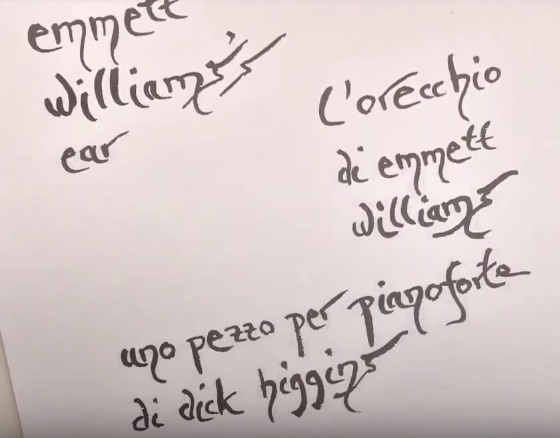 emmett
williams's
ear
l'orecchio
di emmett
williams
uno pezzo per pianoforte
di dick higgins